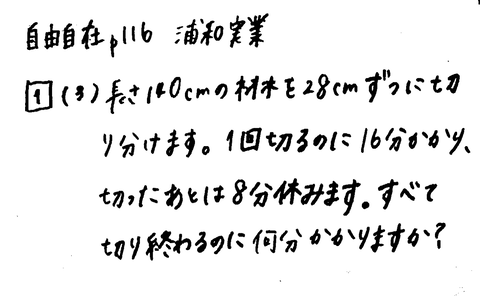 自由自在p116 浦和実業
1 (3) 長さ140cmの材木を28cmずつに切
り分けます。1回切るのに16分かかり、
切ったあとは8分休みます。すべて
切り終わるのに何分かかりますか?